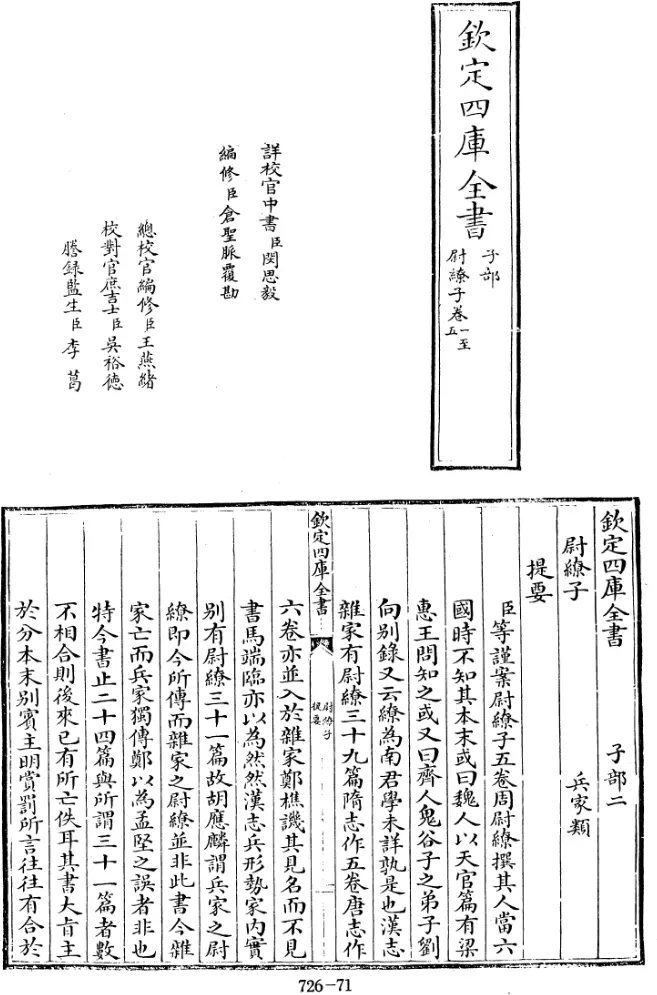 欽定四庫全書
子部
尉繚子卷一至
五
詳校官中書臣閔思毅
編修臣倉聖脈覆勘
總校官編修臣王燕緒
校對官庶吉士臣吳裕德
謄錄監生臣李蒀
欽定四庫全書 子部二
尉繚子 兵家類
提要
臣等謹案尉繚子五卷周尉繚撰其人當六
國時不知其本末或曰魏人以天官篇有梁
惠王問知之或又曰齊人鬼谷子之弟子劉
向別錄又云繚為商君學未詳孰是也漢志
雜家有尉繚二十九篇隋志作五卷唐志作
欽定四庫全書
尉繚子
提要
一
六卷亦並入於雜家鄭樵譏其見名而不見
書馬端臨亦以為然然漢志兵形勢家內實
別有尉繚三十一篇故胡應麟謂兵家之尉
繚即今所傳而雜家之尉繚並非此書今雜
家亡而兵家獨傳鄭以為孟堅之誤者非也
特今書止二十四篇與所謂三十一篇者數
不相合則後來已有所亡佚耳其書大旨主
於分本末別賓主明賞罰所言往往有合於
726-71